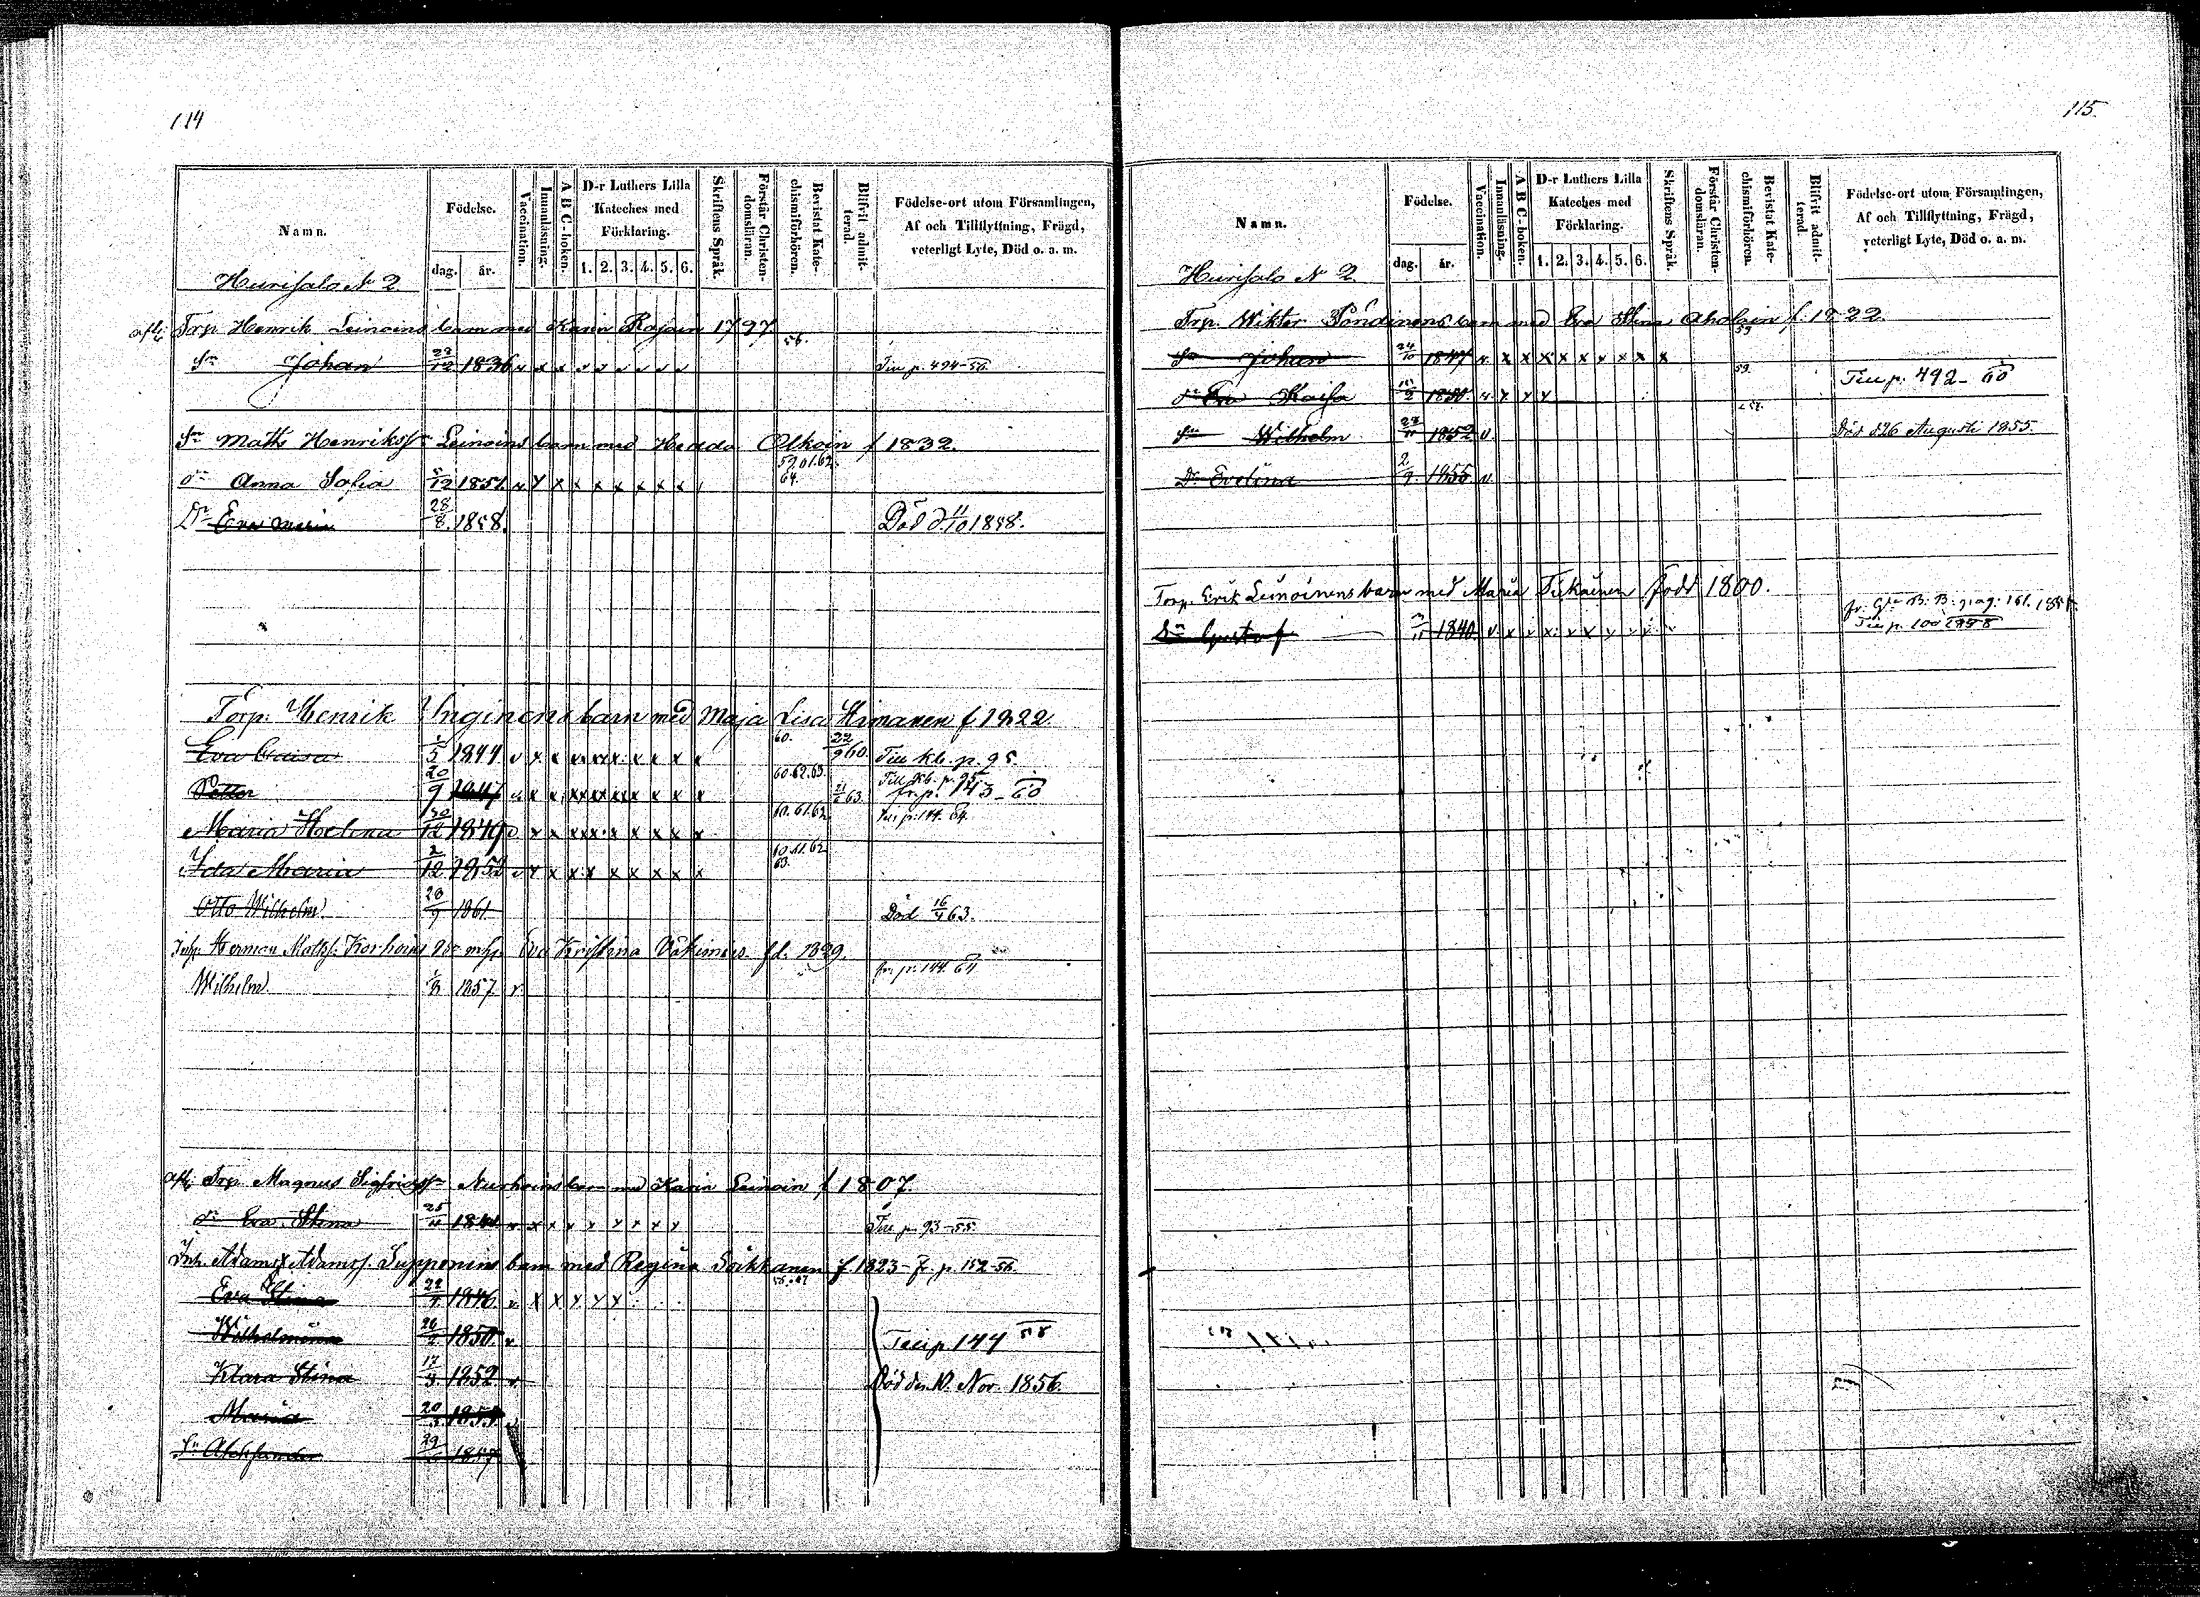 114
Namn. Födelse. dag. år. Vaccination. Innanläsning. A B C-boken. D-r Luthers Lilla Kateches med Förklaring. 1. 2. 3. 4. 5. 6. Skriftens Språk. Förstår Christendomsläran. Bevistat Katechismiförhören. Blifvit admitterad. Födelse-ort utom Församlingen, Af och Tillflyttning, Frägd, veterligt Lyte, Död o. a. m.
Hurisalo N 2.
afl: Torp Henrik Leinoins barn med Karin 1797.
Sn Johan 22/12 1836 v x x v v v v v v 56. Till p. 494-56
Sn Matts Henrikss Leinoins barn med Hedda Olkoin f 1832.
dr Anna Sofia 5/12 1851 v y x x x x x x x 59.61.62. 64.
Dr Eva Maria 28/8 1858. Död d. 11/10 1858.
Torp. Henrik Ynginens barn med Maja Lisa Himanen f 1822
Eva Caisa 1/5 1844 v x x x x x x x x 60. 22/9 60. Till kb. p. 95.
Petter 20/9 1847 x x x x x x x x 60.62.63. 21/6 63. Till kb. p. 95. fr. p. 143-60
Maria Helena 30/12 1849 v x x x x x x x x 60.61.62 Till p. 144. 64.
Ida Maria 2/12 1852 v y x x x x x x x 60.61.62 63.
Otto Wilhelm 28/9 1861 Död 16/4 63.
Inh. Herman Matths. Korhoins Eva Kristina fd. 1829.
Wilhelm 1/3 1857 v fr. p. 144. 64
afl: Torp Magnus Sigfridss Nurhoins barn med Karin Leinoin f 1807.
dr Eva Stina 25/11 1841 v x x x y y x y Till p. 93-55.
Inh. Adam Adamss. Sipponens barn med Regina Soikkanen f 1823- fr. p. 152-56.
Eva Stina 22/9 1846 v x x y y x 56.57
Wilhelmina 26/2 1850 v Till p. 144 58
Klara Stina 17/3 1852 v Död den 10. Nov. 1856.
Maria 20/3 1855
Sn Alexander 29 1857
115.
Namn. Födelse. dag. år. Vaccination. Innanläsning. A B C-boken. D-r Luthers Lilla Kateches med Förklaring. 1. 2. 3. 4. 5. 6. Skriftens Språk. Förstår Christendomsläran. Bevistat Katechismiförhören. Blifvit admitterad. Födelse-ort utom Församlingen, Af och Tillflyttning, Frägd, veterligt Lyte, Död o. a. m.
Hurisalo N 2.
Torp. Wiktor Pöndinens barn med Eva Stina Aholain f. 1822
Sn Johan 24/10 1847 v x x x x x x x x x 59
dr Eva Kaisa 1850 v y y y 59. Till p. 492-60
Sn Wilhelm 27/11 1852 v Död d 26 Augusti 1855.
Dr Evelina 2/9 1855 v
Torp. Erik Leinoinens barn med Maria Tiikainen född 1800.
Sn Gustaf 1840 v x x x x x x x x fr. Gla B: B: pag: 161. Till p. 100 1858